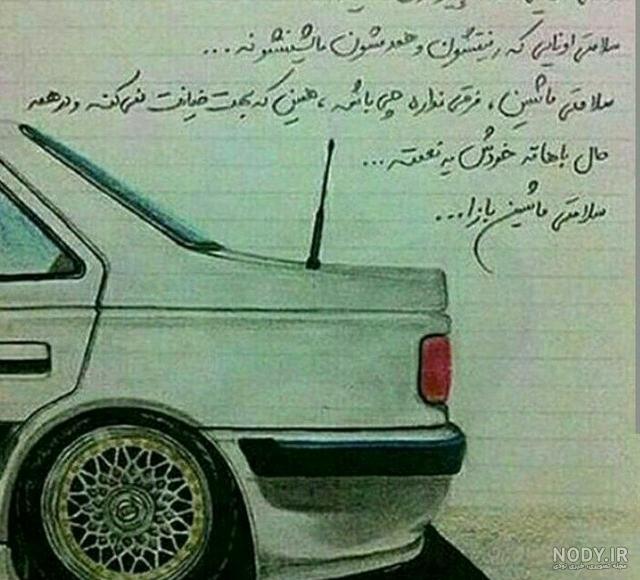 سلامتی اونایی که رفیقشون و همدمشون ماشینشونه ...
سلامتی ماشین، فرقی نداره چی باشه، همین که بهت خیانت نمی‌کنه و در همه
حال باهاته خودش یه نعمته ...
سلامتی ماشین بازا ...
NODY.IR
مجله تصویری، خبری نودی